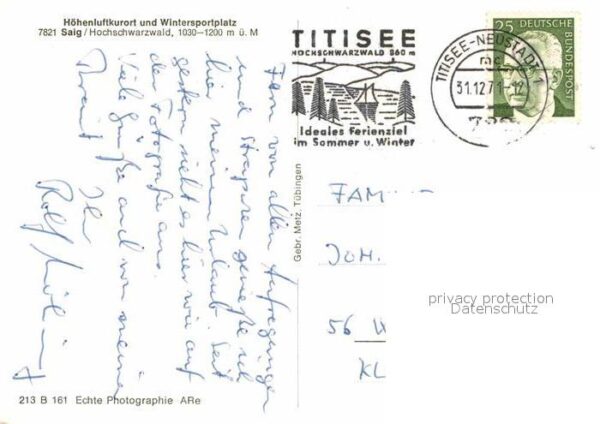 Höhenluftkurort und Wintersportplatz
7821 Saig/Hochschwarzwald, 1030-1200 m ü. M
TITISEE
HOCHSCHWARZWALD 860 m
Ideales Ferienziel
im Sommer u. Winter
TITISEE-NEUSTADT 1
31.12.71-12
25 DEUTSCHE
BUNDESPOST
Fern von allen Aufregungen
und Strapazen genieße ich
hier meinen Urlaub. Seit
gestern sieht es hier wie auf
der Fotografie aus.
Viele Grüße auch von meiner
Braut
Ihr
Rolf
Gebr. Metz, Tübingen
FAM
JOH.
56 W
KL
privacy protection
Datenschutz
213 B 161 Echte Photographie ARe